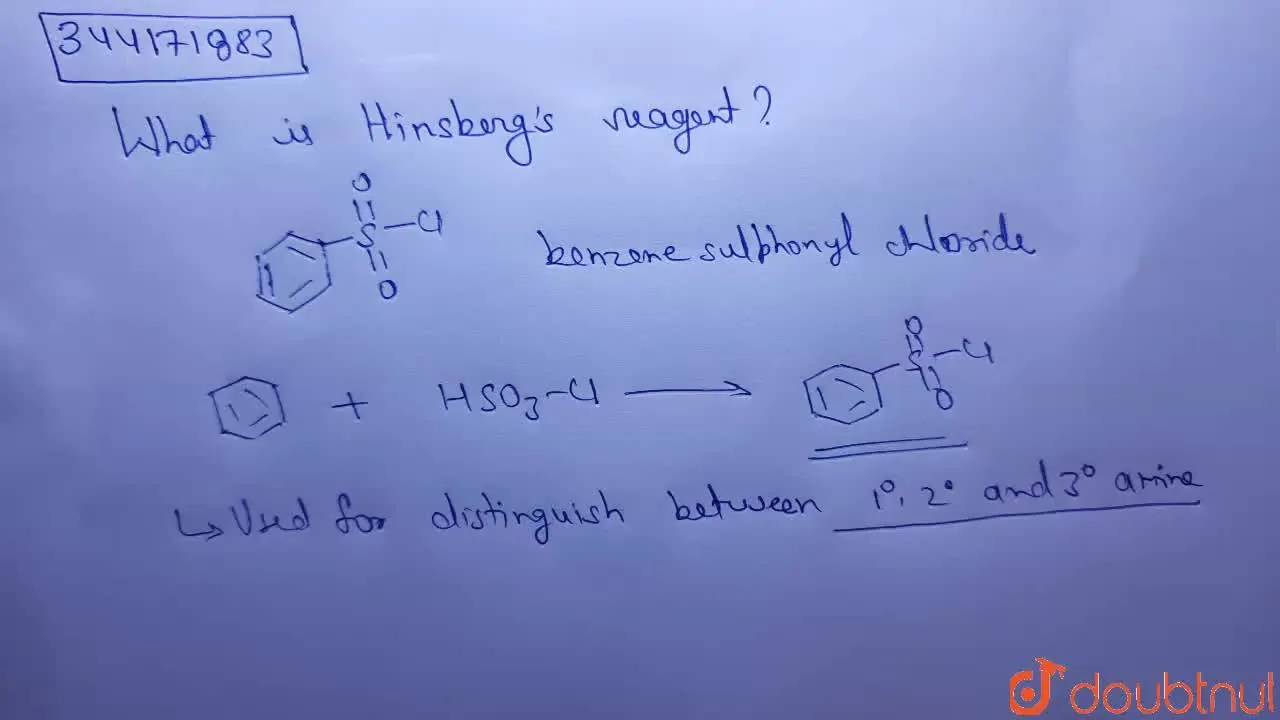 344171983
What is Hinsberg's reagent?
O
S-Cl
O
benzene sulphonyl chloride
+ HSO3-Cl → 
O
S-Cl
O
↳ Used for distinguish between 1°, 2° and 3° amine
doubtnut